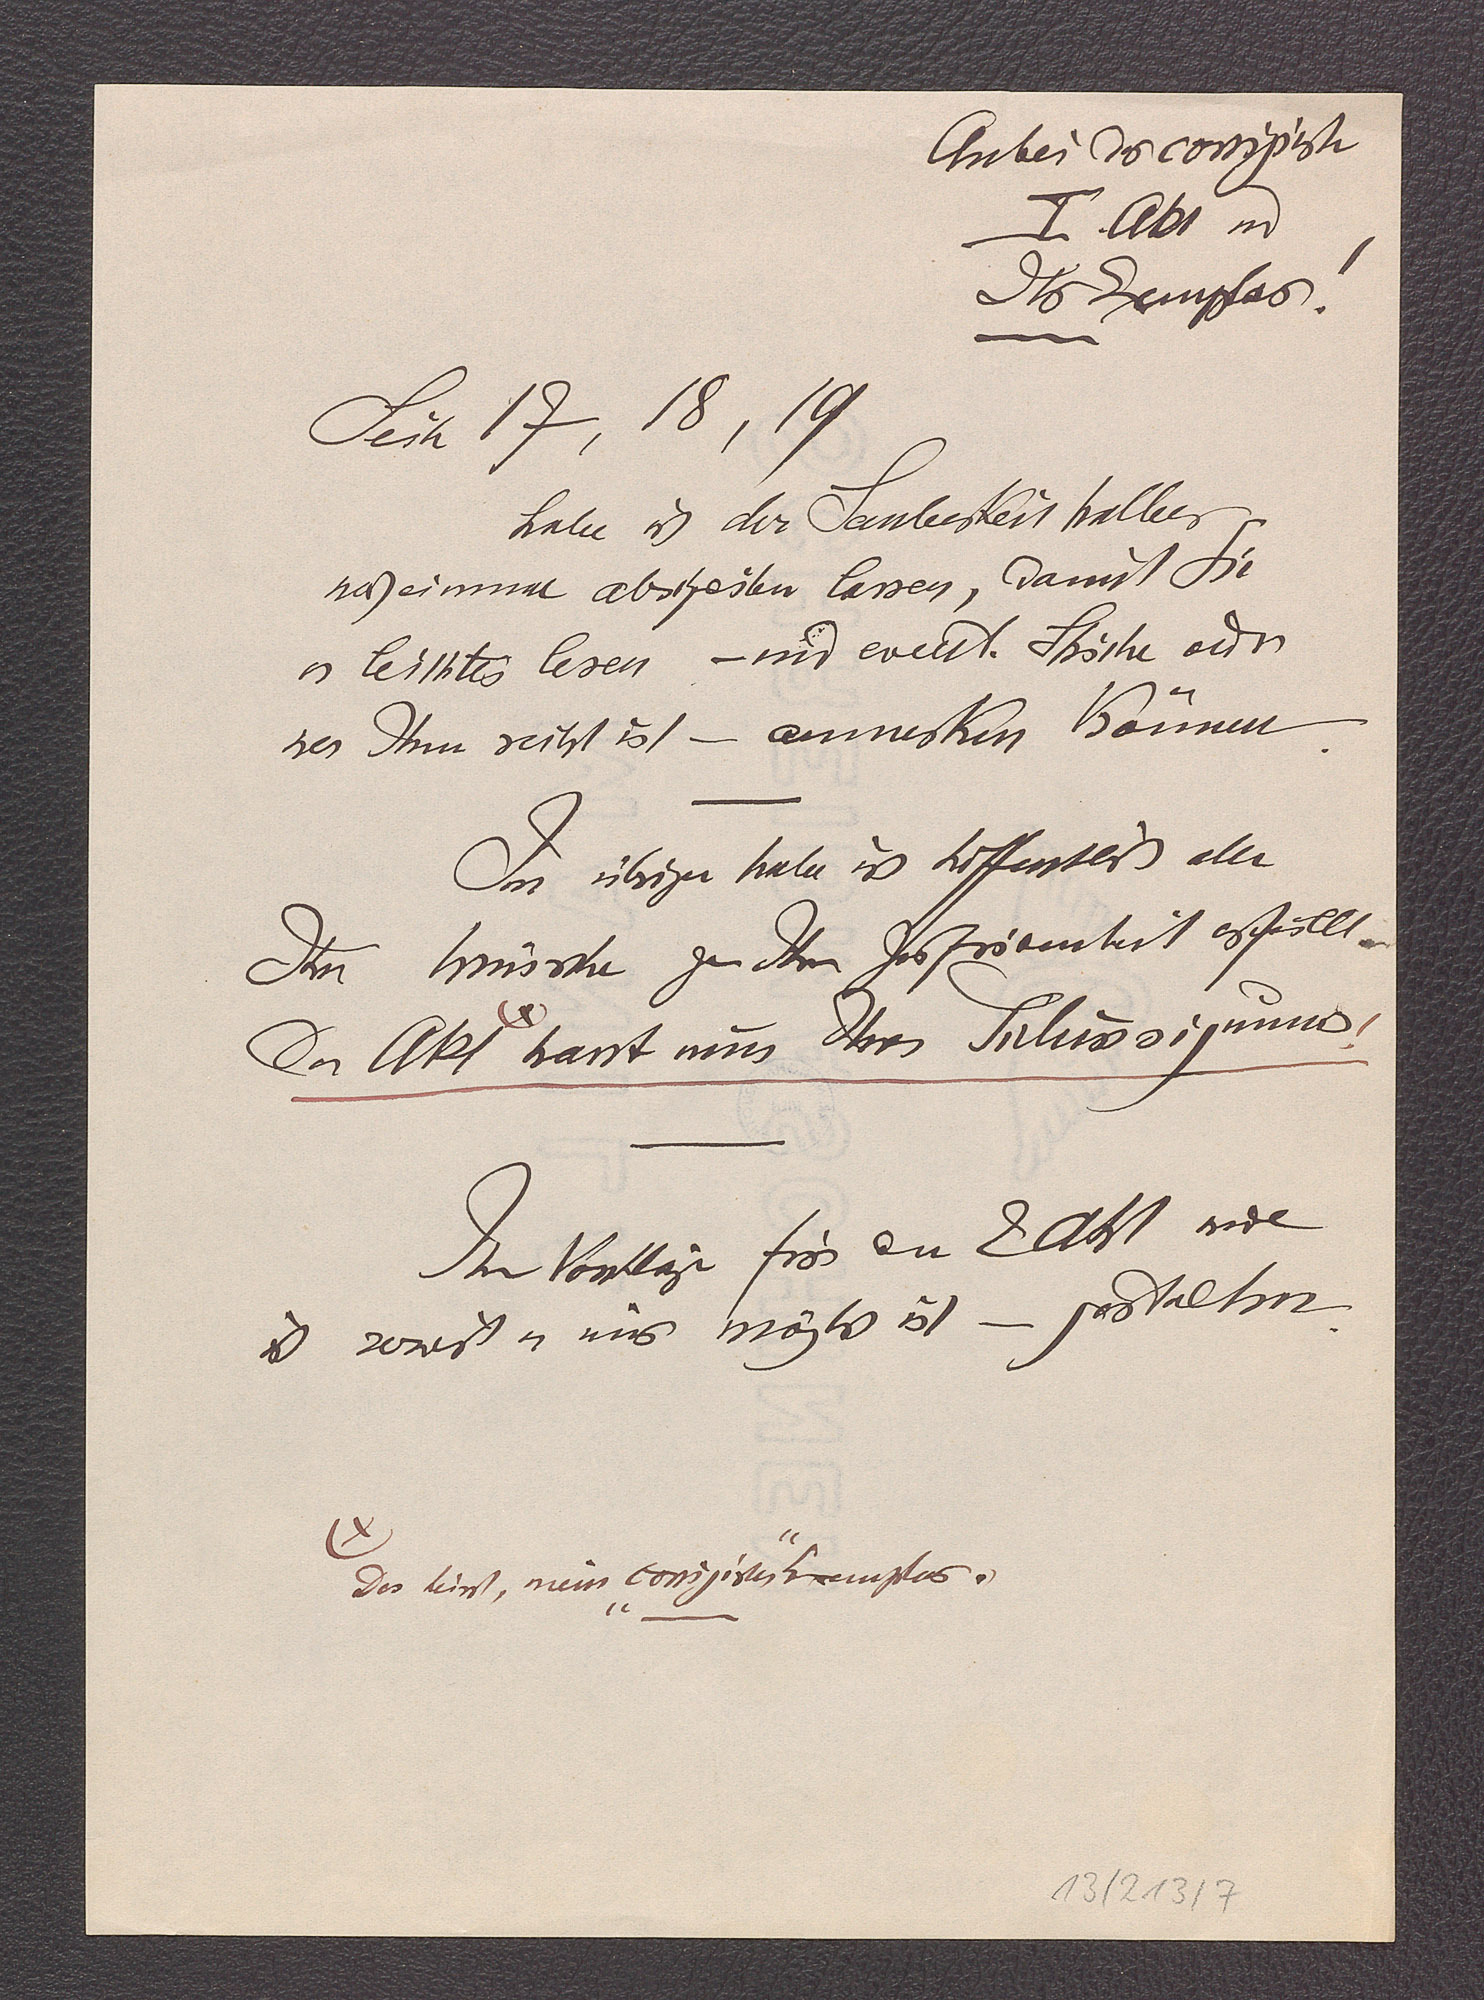 Anbei der corrigirte
I. Akt und
Ihr Exemplar!
Seite 17, 18, 19
habe ich der Sauberkeit halber
noch einmal abschreiben lassen, damit Sie
es leichter lesen – und event. Striche oder
was Ihnen recht ist – anmerken können.
Im übrigen habe ich hoffentlich alle
Ihre Wünsche zu Ihrer Zufriedenheit erfüllt.
Der Akt (x) harrt nun Ihrer
Ihre Vorschläge für den 2 Akt werde
ich soweit es mir möglich ist – gestalten.
(x)
Das heisst, mein "corrigirtes" Exemplar.
13/213/7